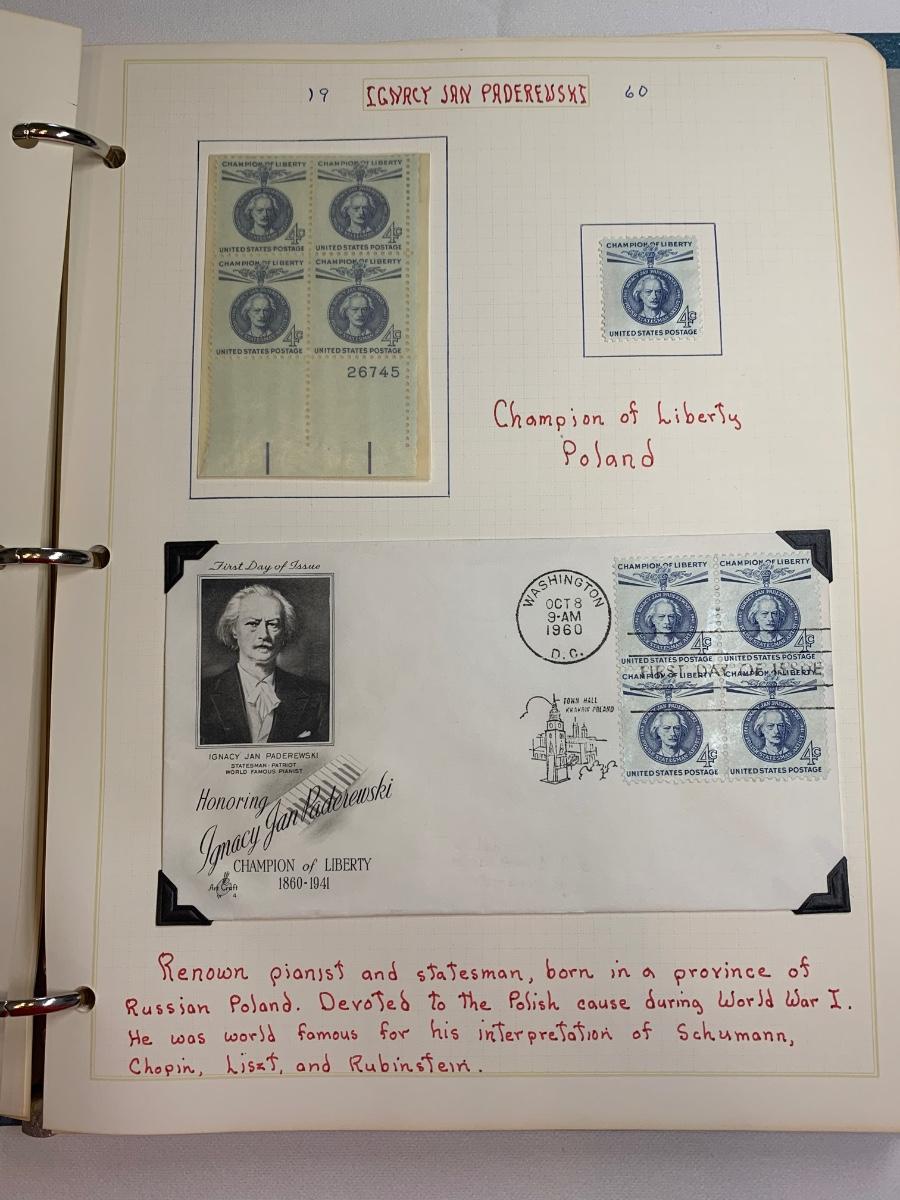 19 IGNACY JAN PADEREWSKI 60
CHAMPION OF LIBERTY CHAMPION OF LIBERTY
4¢ 4¢
UNITED STATES POSTAGE UNITED STATES POSTAGE
CHAMPION OF LIBERTY CHAMPION OF LIBERTY
4¢ 4¢
UNITED STATES POSTAGE UNITED STATES POSTAGE
26745
CHAMPION OF LIBERTY
IGNACY JAN PADEREWSKI
4¢
UNITED STATES POSTAGE
Champion of Liberty
Poland
First Day of Issue
IGNACY JAN PADEREWSKI
STATESMAN · PATRIOT
WORLD FAMOUS PIANIST
Honoring
Ignacy Jan Paderewski
CHAMPION of LIBERTY
1860-1941
Art Craft
WASHINGTON
OCT 8
9-AM
1960
D.C.
TOWN HALL
KRAKOW POLAND
CHAMPION OF LIBERTY CHAMPION OF LIBERTY
IGNACY JAN PADEREWSKI IGNACY JAN PADEREWSKI
4¢ 4¢
UNITED STATES POSTAGE UNITED STATES POSTAGE
FIRST DAY OF ISSUE
CHAMPION OF LIBERTY CHAMPION OF LIBERTY
IGNACY JAN PADEREWSKI IGNACY JAN PADEREWSKI
4¢ 4¢
UNITED STATES POSTAGE UNITED STATES POSTAGE
Renown pianist and statesman, born in a province of
Russian Poland. Devoted to the Polish cause during World War I.
He was world famous for his interpretation of Schumann,
Chopin, Liszt, and Rubinstein.